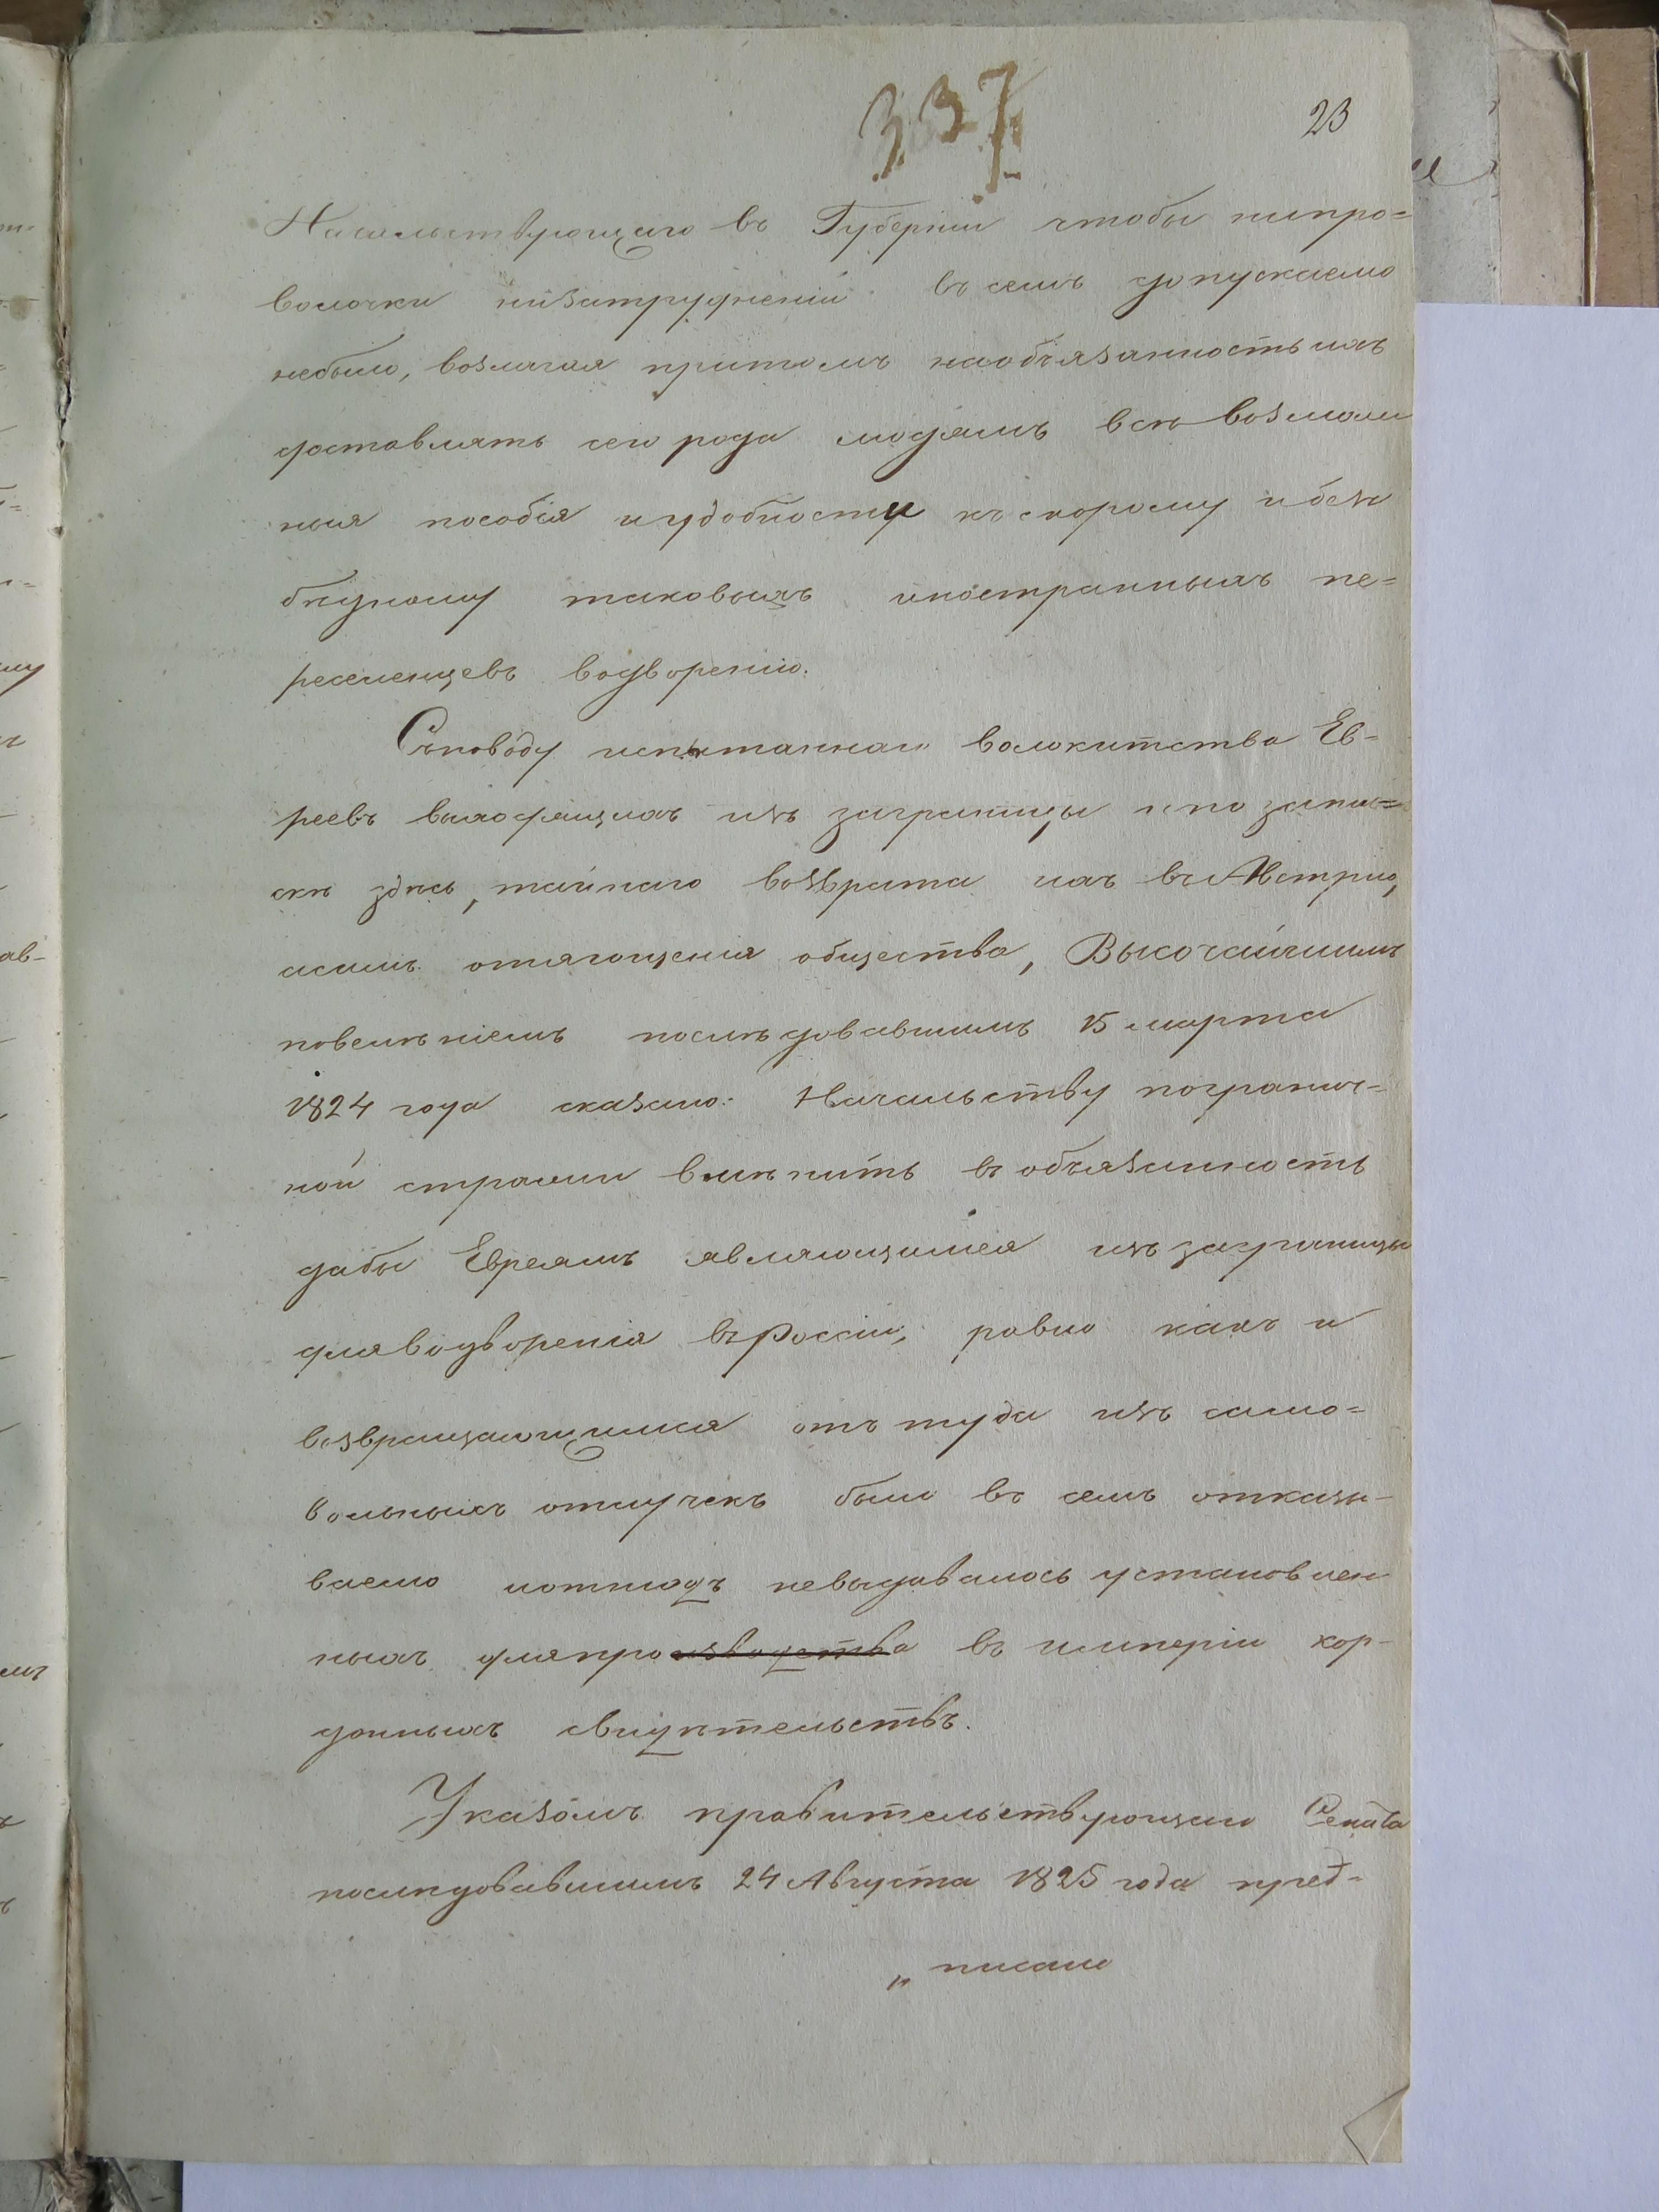 337
23
Начальствующаго въ Губерніи чтобы нипро=
волочки низатрудненій въ семъ допускаемо
небыло, возлагая притомъ наобязанность ихъ
доставлять сего рода людямъ всѣ возмож
ныя пособія иудобности къ скорому ибез
бѣдному таковыхъ иностранныхъ пе=
реселенцевъ водворенію.
Споводу испытаннаго волокитства Ев=
реевъ выходящихъ изъ заграницы ипо запи=
скѣ здѣсь, тайнаго возврата ихъ въ Австрію,
исимъ отягощенія общества, Высочайшимъ
повелѣніемъ послѣдовавшимъ 15 марта
1824 года сказано: Начальству погранич=
ной стражи вмѣнить въ обязанность
дабы Евреямъ являющимся изъ заграницы
дляводворенія въ Россіи, равно какъ и
возвращающимся отъ туда изъ само=
вольныхъ отлучекъ было въ семъ отказы-
ваемо иотнюдъ невыдавалось установлен
ныхъ дляпроизводства въ имперіи кор-
донныхъ свидѣтельствъ.
Указомъ правительствующаго Сената
послѣдовавшимъ 24 Августа 1825 года пред=
„ писано